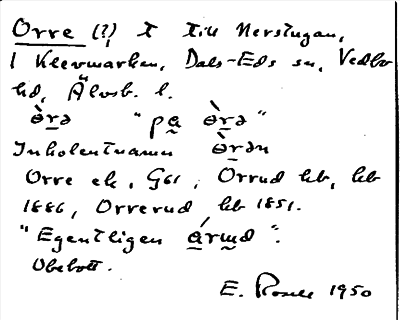 Orre (?) t till Nerstugan,
1 Klevmarken, Dals-Eds sn, Vedbo
hd, Älvsb. l.
ə̀rə "pa ə̀rə"
Inkolentnamn ə̀rən
Orre ek, G61, Orrud hb, hb
1886, Orrerud hb 1851.
"Egentligen árɯd".
Obebott.
E. Rosell 1950